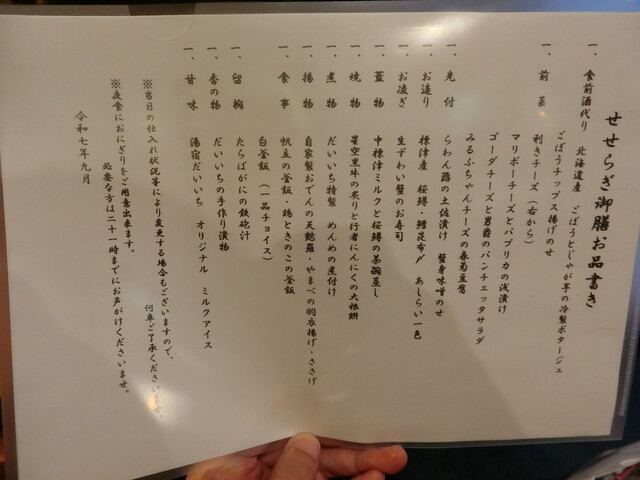 せせらぎ御膳お品書き
一、食前酒代り　北海道産　ごぼうとじゃが芋の冷製ポタージュ
ごぼうチップス揚げのせ
一、前菜　利きチーズ（右から）
マリボーチーズとパプリカの浅漬け
ゴーダチーズと男爵のパンチェッタサラダ
みるふちゃんチーズの春菊豆富
一、先付　らわん蕗の土佐漬け　蟹身味噌のせ
一、お造り　標津産　桜鱒・鱈昆布〆　あしらい一色
一、お凌ぎ　生ずわい蟹のお寿司
一、蓋物　中標津ミルクと桜鱒の茶碗蒸し
一、焼物　星空黒牛の炙りと行者にんにくの大根餅
一、煮物　だいいち特製　めんめの煮付け
一、揚物　自家製おでんの天麩羅・やまべの羽衣揚げ・ささげ
一、食事　帆立の釜飯・鶏ときのこの釜飯
白釜飯　（一品チョイス）
一、留椀　たらばがにの鉄砲汁
一、香の物　だいいちの手作り漬物
一、甘味　湯宿だいいち　オリジナル　ミルクアイス
※当日の仕入れ状況等により変更する場合もございますので、
何卒ご了承くださいませ。
※夜食におにぎりをご用意出来ます。
必要な方は二十一時までにお声がけくださいませ。
令和七年九月